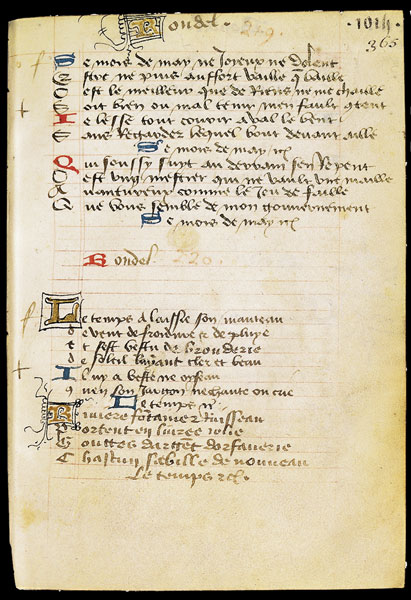 Rondel. 219.
·1014·
365
Ce mois de may, ne Joyeux ne dolent
Estre ne puis auffort vaille que vaille
Cest le meilleur que de Riens ne me chaille
Soit bien ou mal tenir men fault 9tent
Ie lesse tout courir aval le vent
Sans Regarder lequel bout devant aille
Ce mois de may rc
Qui soussy suyt au derrain sen Repent
Cest ung mestier qui ne vault une maille
Avantureux comme le Jeu de faille
Que vous semble de mon gouvernement
Ce mois de may rc
Rondel. 220.
Le temps a laissie son manteau
de vent de froidure & de pluye
et sest vestu de brouderie
de soleil luyant cler et beau
Il ny a beste ne oyseau
quen son Jargon ne chante ou crie
Le temps rc
Riviere fontaine & Ruisseau
Portent en livree jolie
Gouttes dargent dorfaverie
Chascun sabille de nouveau
Le temps rcl.